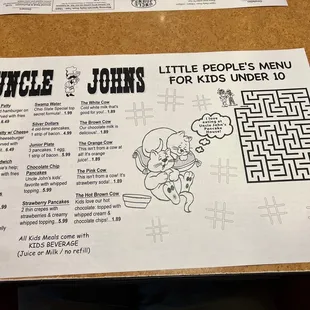 UNCLE JOHNS
LITTLE PEOPLE'S MENU
FOR KIDS UNDER 10
Patty
hamburger on
with fries
8.49
Patty w/ Cheese
cheeseburger
with fries
8.49
with fries
Swamp Water
Ohio State Special top
secret formula! .. 1.99
Silver Dollars
4 old-time pancakes,
1 strip of bacon .. 5.99
Junior Plate
3 pancakes, 1 egg,
1 strip of bacon .. 5.99
Chocolate Chip
Pancakes
Uncle John's kids'
favorite with whipped
topping... 5.99
Strawberry Pancakes
2 thin crepes with
strawberries & creamy
whipped topping... 5.99
The White Cow
Cold white milk that's
good for you! .. 1.89
The Brown Cow
Our chocolate milk is
delicious! .. 1.89
The Orange Cow
This isn't from a cow at
all it's orange
juice! .. 1.89
The Pink Cow
This isn't from a cow! It's
strawberry soda!.. 1.89
The Hot Brown Cow
Kids love our hot
chocolate: topped with
whipped cream &
chocolate chips!.. 1.89
All Kids Meals come with
KIDS BEVERAGE
(Juice or Milk / no refill)
I love
eating at
Uncle John's
Pancake
House!